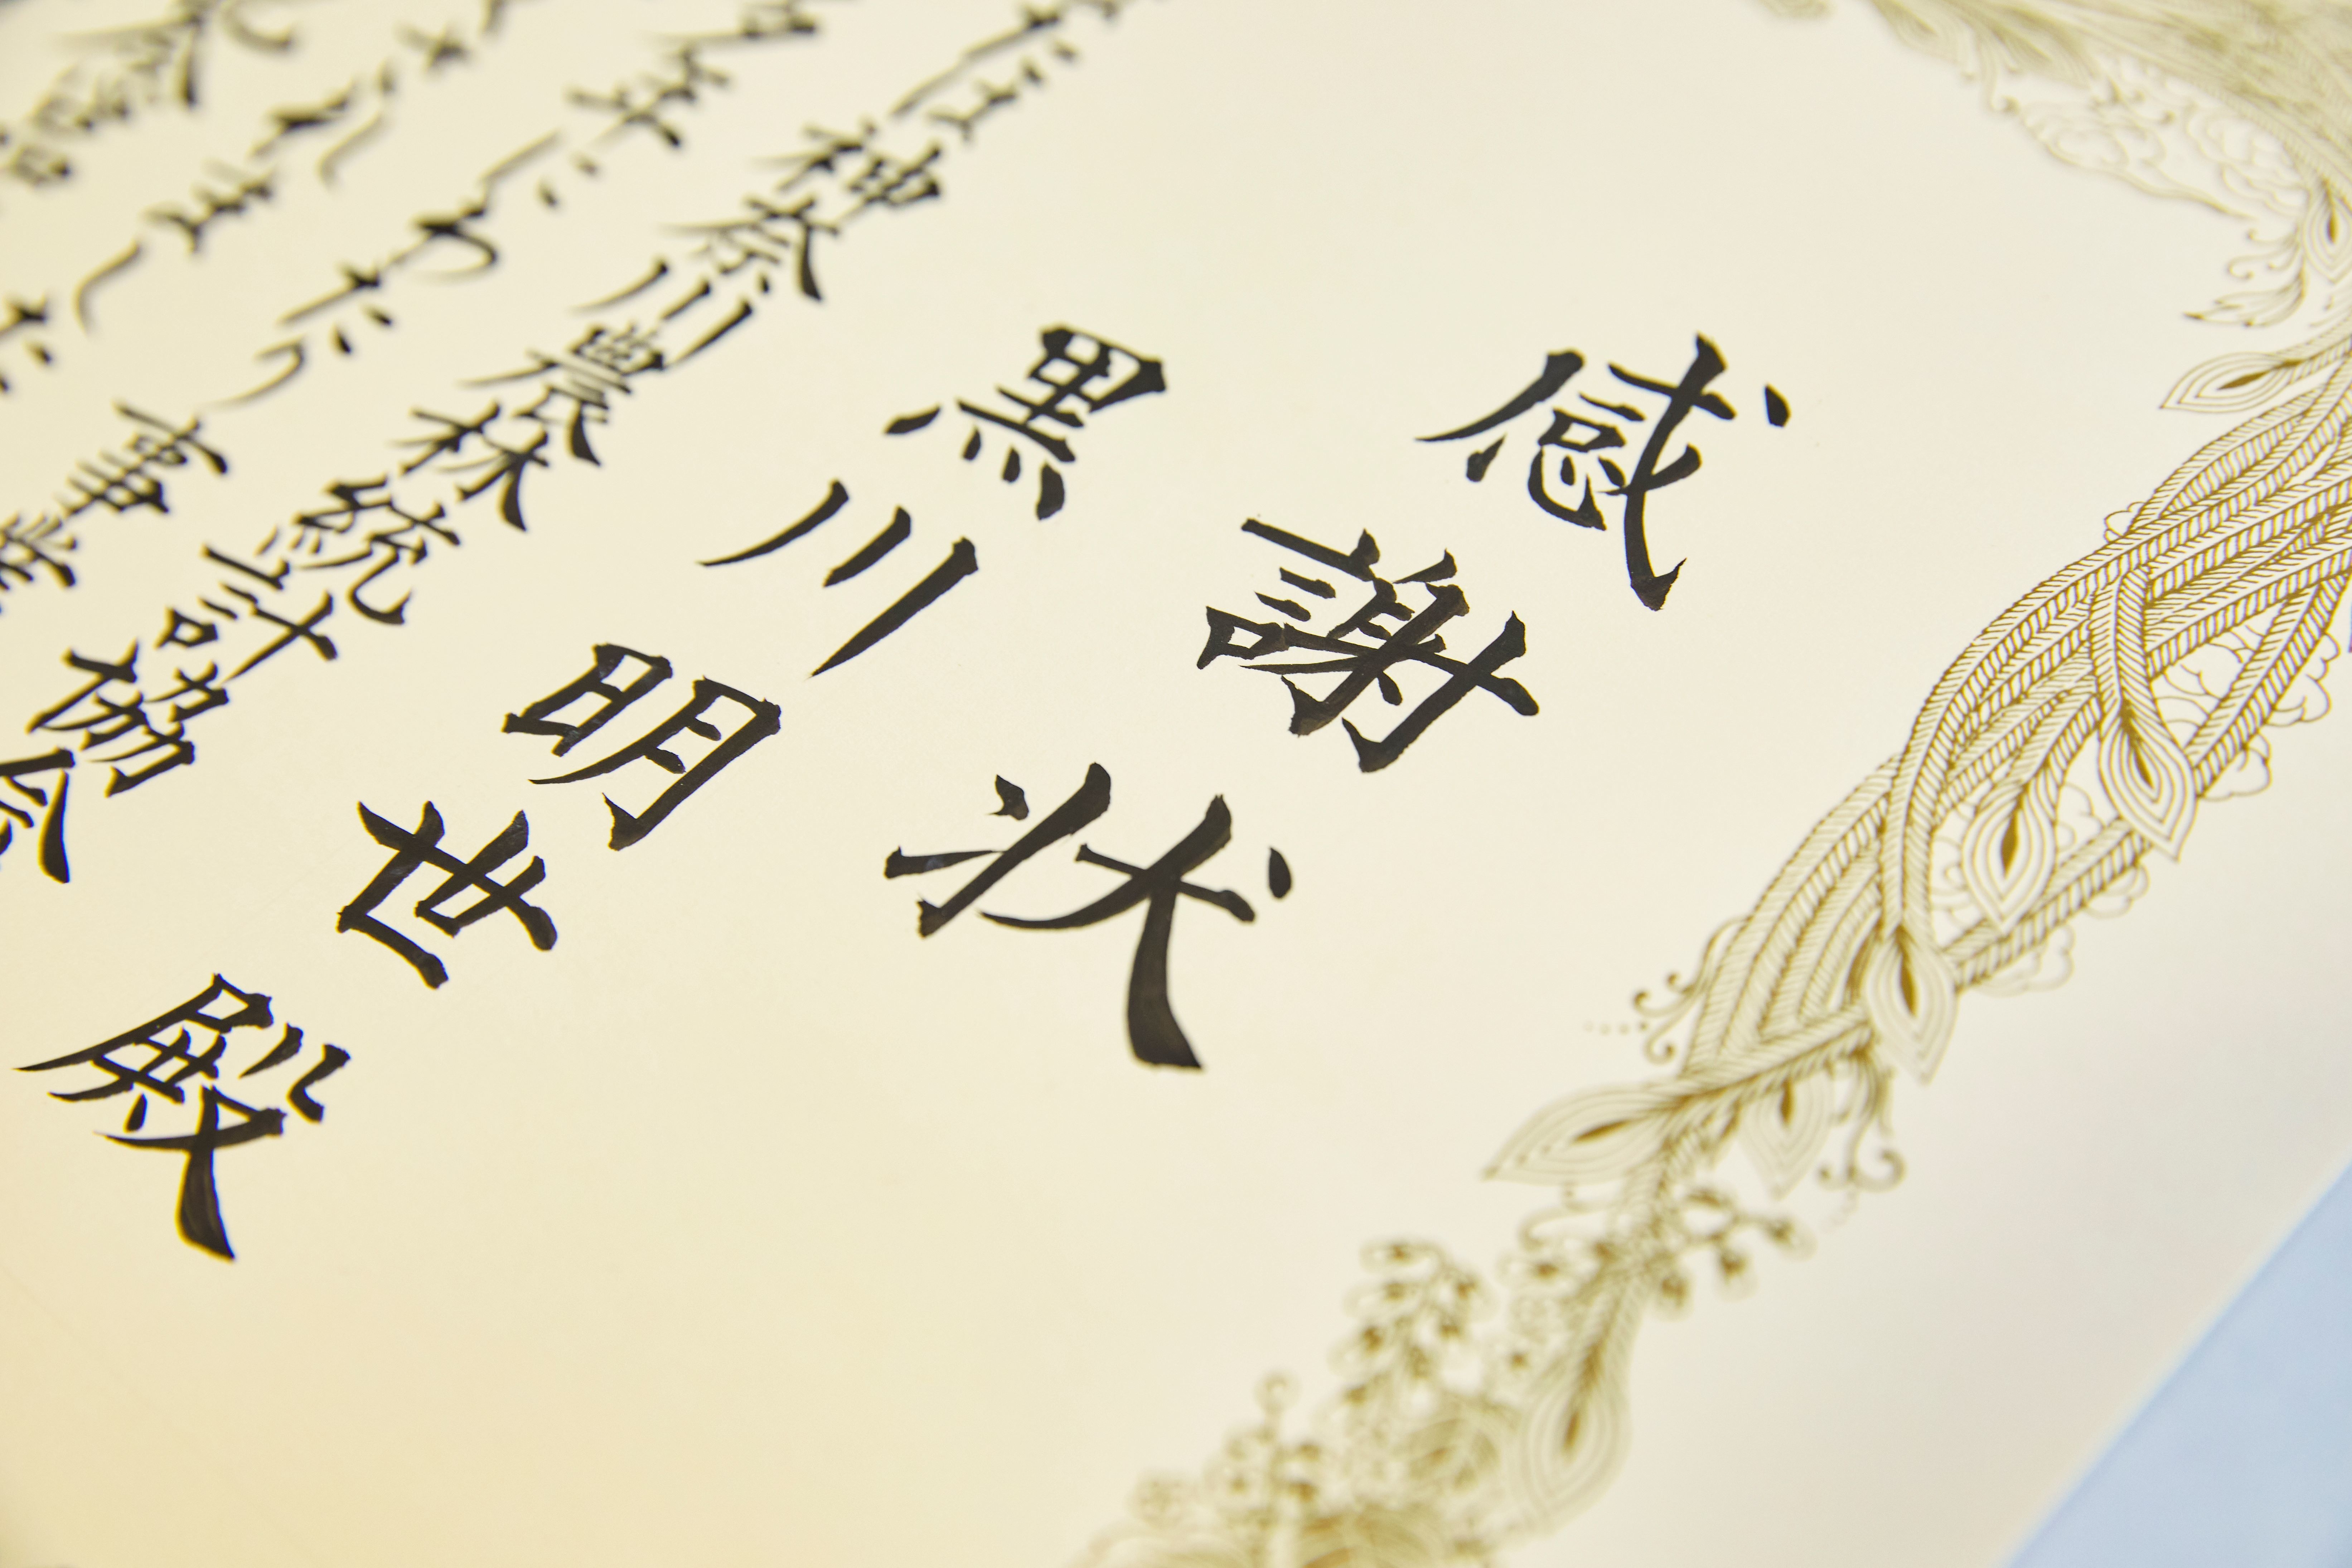 感謝状
黒川明世殿
は神奈川農林統計協会
年にわたり
れました
事業